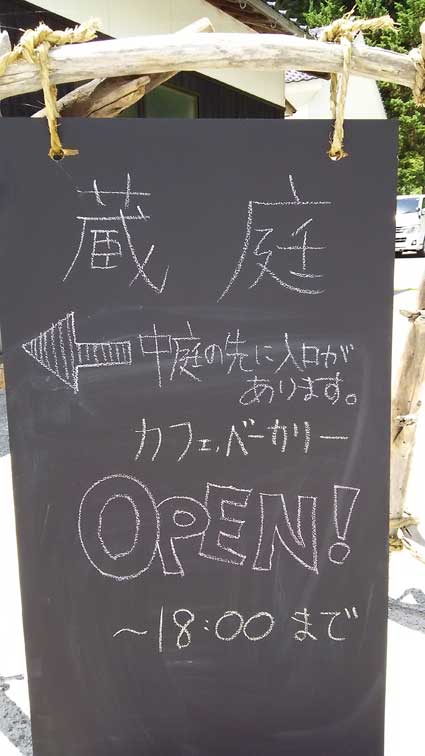 蔵庭
中庭の先に入口が
あります。
カフェ、ベーカリー
OPEN!
～18:00 まで